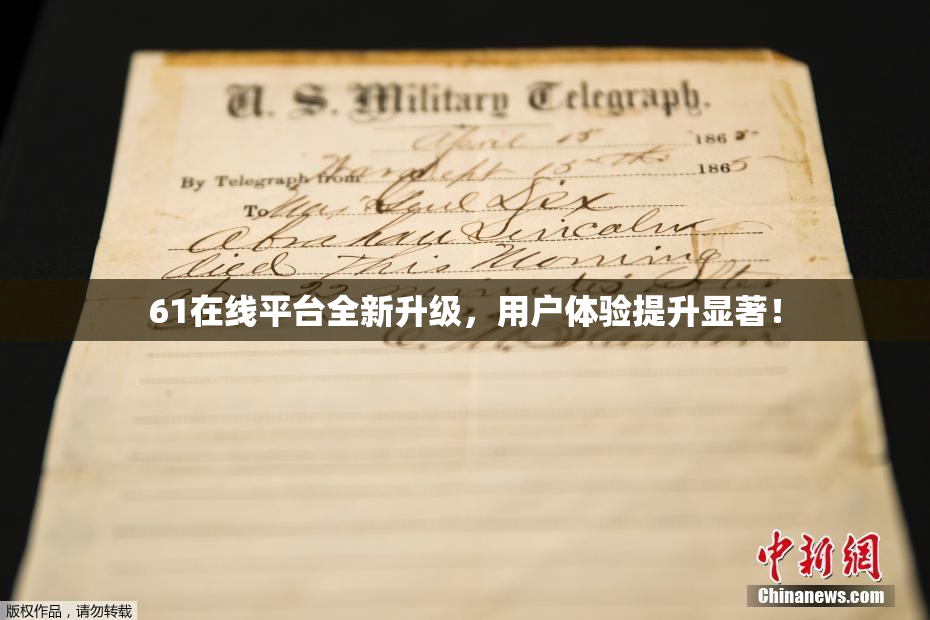 U. S. Military Telegraph.
April 15 1865
By Telegraph from War Dept 15th 1865
To Maj Genl Dix
Abraham Lincoln
died This Morning
at 22 minutes after
61在线平台全新升级，用户体验提升显著！
E. M. Stanton
中新網
Chinanews.com
版权作品，请勿转载